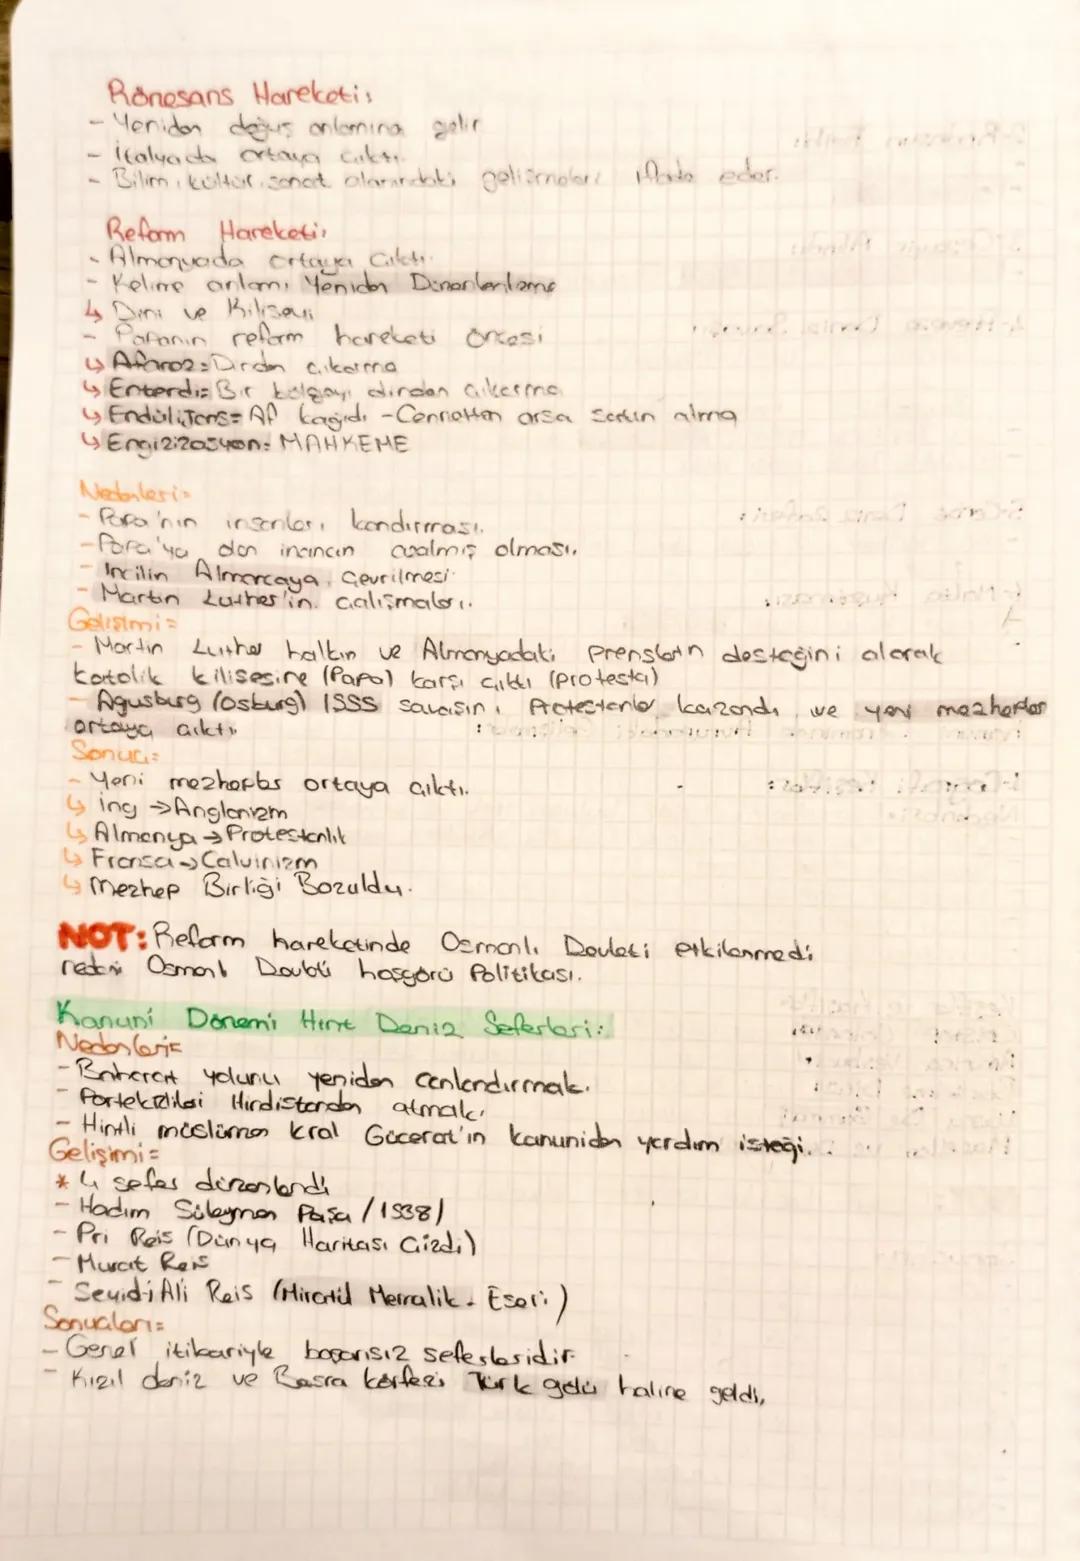 Rönesans Hareketi:
- Yeniden doğuş anlamına gelir
- İtalyada ortaya çıktı.
- Bilim, kültür, sanat alanındaki gelişmeleri ifade eder.
Reform Hareketi:
- Almanyada ortaya çıktı.
- Kelime anlamı Yeniden Düzenlenleme
↳ Dini ve Kiliseyi
- Papanın reform hareketi öncesi
↳ Afaroz = Dinden çıkarma
↳ Enterdi = Bir bölgeyi dinden çıkarma
↳ Endülijans = Af kağıdı - Cennetten arsa satın alma
↳ Engizizasyon = MAHKEME
Nedenleri =
- Papa'nın insanları kandırması.
- Papa'ya olan inancın azalmış olması.
- İncilin Almancaya Çevrilmesi
- Martin Luther'in çalışmaları.
Gelişimi =
- Martin Luther halkın ve Almanyadaki prenslerin desteğini alarak
katolik kilisesine (Papa) karşı çıktı (protesta)
- Agusburg (Osburg) 1555 savaşını Protestanlar kazandı ve yeni mezhepler
ortaya çıktı.
Sonucu =
- Yeni mezhepler ortaya çıktı.
↳ ing → Anglanizm
↳ Almanya → Protestanlık
↳ Fransa → Calvinizm
↳ Mezhep Birliği Bozuldu.
NOT: Reform hareketinde Osmanlı Devleti etkilenmedi
nedeni Osmanlı Devleti hoşgörü Politikası.
Kanuni Dönemi Hint Deniz Seferleri:
Nedenleri =
- Baharat yolunu yeniden canlandırmak.
- Portekizlileri Hindistandan atmak.
- Hintli müslüman kral Gücerat'ın kanuniden yardım isteği.
Gelişimi =
* 4 sefer düzenlendi
- Hadım Süleyman Paşa /1538/
- Pri Reis (Dünya Haritası Çizdi)
- Murat Reis
- Seyid-i Ali Reis (Miratül Memalik - Eseri)
Sonuçları =
- Genel itibariyle başarısız seferleridir
- Kızıl deniz ve Basra körfezi Türk gölü haline geldi,